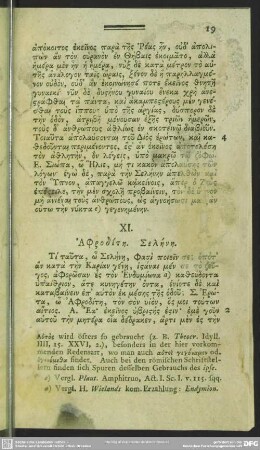 19
ἀπόκοιτος ἐκεῖνος παρὰ τῆς Ῥέας ἦν, οὐδ᾽ ἀπολι-
πὼν ἂν τὸν οὐρανὸν ἐν Θήβαις ἐκοιμᾶτο, ἀλλὰ
ἡμέρα μὲν ἦν ἡ ἡμέρα, νὺξ δὲ κατὰ μέτρον τὸ αὐ-
τῆς ἀνάλογον ταῖς ὥραις, ξένον δὲ ἢ παρηλλαγμέ-
νον οὐδὲν, οὐδ᾽ ἂν ἐκοινώνησέ ποτε ἐκεῖνος θνητῇ
γυναικί· νῦν δὲ δυστήνου γυναίου ἕνεκα χρὴ ἀνε-
στράφθαι τὰ πάντα, καὶ ἀκαμπεστέρους μὲν γενέ-
σθαι τοὺς ἵππους ὑπὸ τῆς ἀργίας, δύσπορον δὲ
τὴν ὁδὸν, ἀτριβῆ μένουσαν ἑξῆς τριῶν ἡμερῶν,
τοὺς δ᾽ ἀνθρώπους ἀθλίως ἐν σκοτεινῷ διαβιοῦν.
Τοιαῦτα ἀπολαύσονται τῶν Διὸς ἐρώτων, καὶ κα- 4
θεδοῦνται περιμένοντες, ἔς ἂν ἐκεῖνος ἀποτελέσῃ
τὸν ἀθλητὴν, ὃν λέγεις, ὑπὸ μακρῷ τῷ ζόφῳ.
Ε. Σιώπα, ὦ Ἥλιε, μή τι κακὸν ἀπολαύσῃς τῶν
λόγων· ἐγὼ δὲ, παρὰ τὴν Σελήνην ἀπελθὼν καὶ
τὸν Ὕπνον, ἀπαγγελῶ κἀκείνοις, ἅπερ ὁ Ζεὺς
ἐπέστειλε, τὴν μὲν σχολῇ προβαίνειν, τὸν δὲ Ὕπνον
μὴ ἀνεῖναι τοὺς ἀνθρώπους, ὡς ἀγνοήσωσι μα-
κρὰν οὕτω τὴν νύκτα γεγενημένην.
XI.
Ἀφροδίτη. Σελήνη.
Τί ταῦτα, ὦ Σελήνη, φασὶ ποιεῖν σε; ὁπότ᾽
ἂν κατὰ τὴν Καρίαν γένῃ, ἱστάναι μέν σε τὸ ζεῦ-
γος, ἀφορῶσαν ἐς τὸν Ἐνδυμίωνα a) καθεύδοντα
ὑπαίθριον, ἅτε κυνηγέτην ὄντα, ἐνίοτε δὲ καὶ
καταβαίνειν ἐπ᾽ αὐτὸν ἐκ μέσης τῆς ὁδοῦ. Σ. Ἐρώ-
τα, ὦ Ἀφροδίτη, τὸν σὸν υἱὸν, ὅς μοι τούτων
αἴτιος. Α. Ἔα· ἐκεῖνος ὑβριστής ἐστιν· ἐμὲ γοῦν
αὐτοῦ τὴν μητέρα οἷα δέδρακεν, ἄρτι μὲν ἐς τὴν
Αὐτὸς wird öfters so gebraucht (z. B. Theocr. Idyll.
IIII, 15. XXVI, 2.), besonders in der hier vorkom-
menden Redensart, wo man auch αὐτοὶ γενόμενοι od.
findet. Auch bei den römischen Schriftstel-
lern finden sich Spuren desselben Gebrauchs des ipse.
e) Vergl. Plaut. Amphitruo, Act. I. Sc. I. v. 115. sqq.
a) Vergl. H. Wielands kom. Erzählung: Endymion.